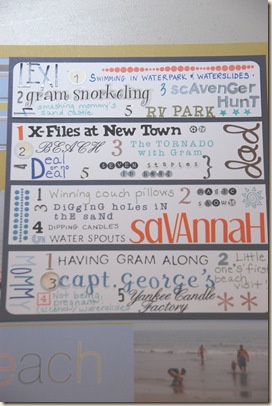 LEXI 1 SWIMMING IN WATERPARK & WATERSLIDES
2 gram snorkeling 3 scAvenGer HunT
4 smashing mommy's sand castle 5 RV PARK
1 X-Files at New Town ON BEACH
2 3 The TORNADO with Gram
4 Deal or No Deal 5 seven staples in head
dad
1 Winning couch pillows 2 magic show
3 DiGGiNG hoLes iN tHe saNd
4 DIPPING CANDLES
5 WATER SPOUTS
saVANNaH
MOMMY 1 HAVING GRAM ALONG 2 Little one's first beach visit
3 capt. George's
4 Not being pregnant: alcohol/waterslides 5 Yankee Candle Factory
each